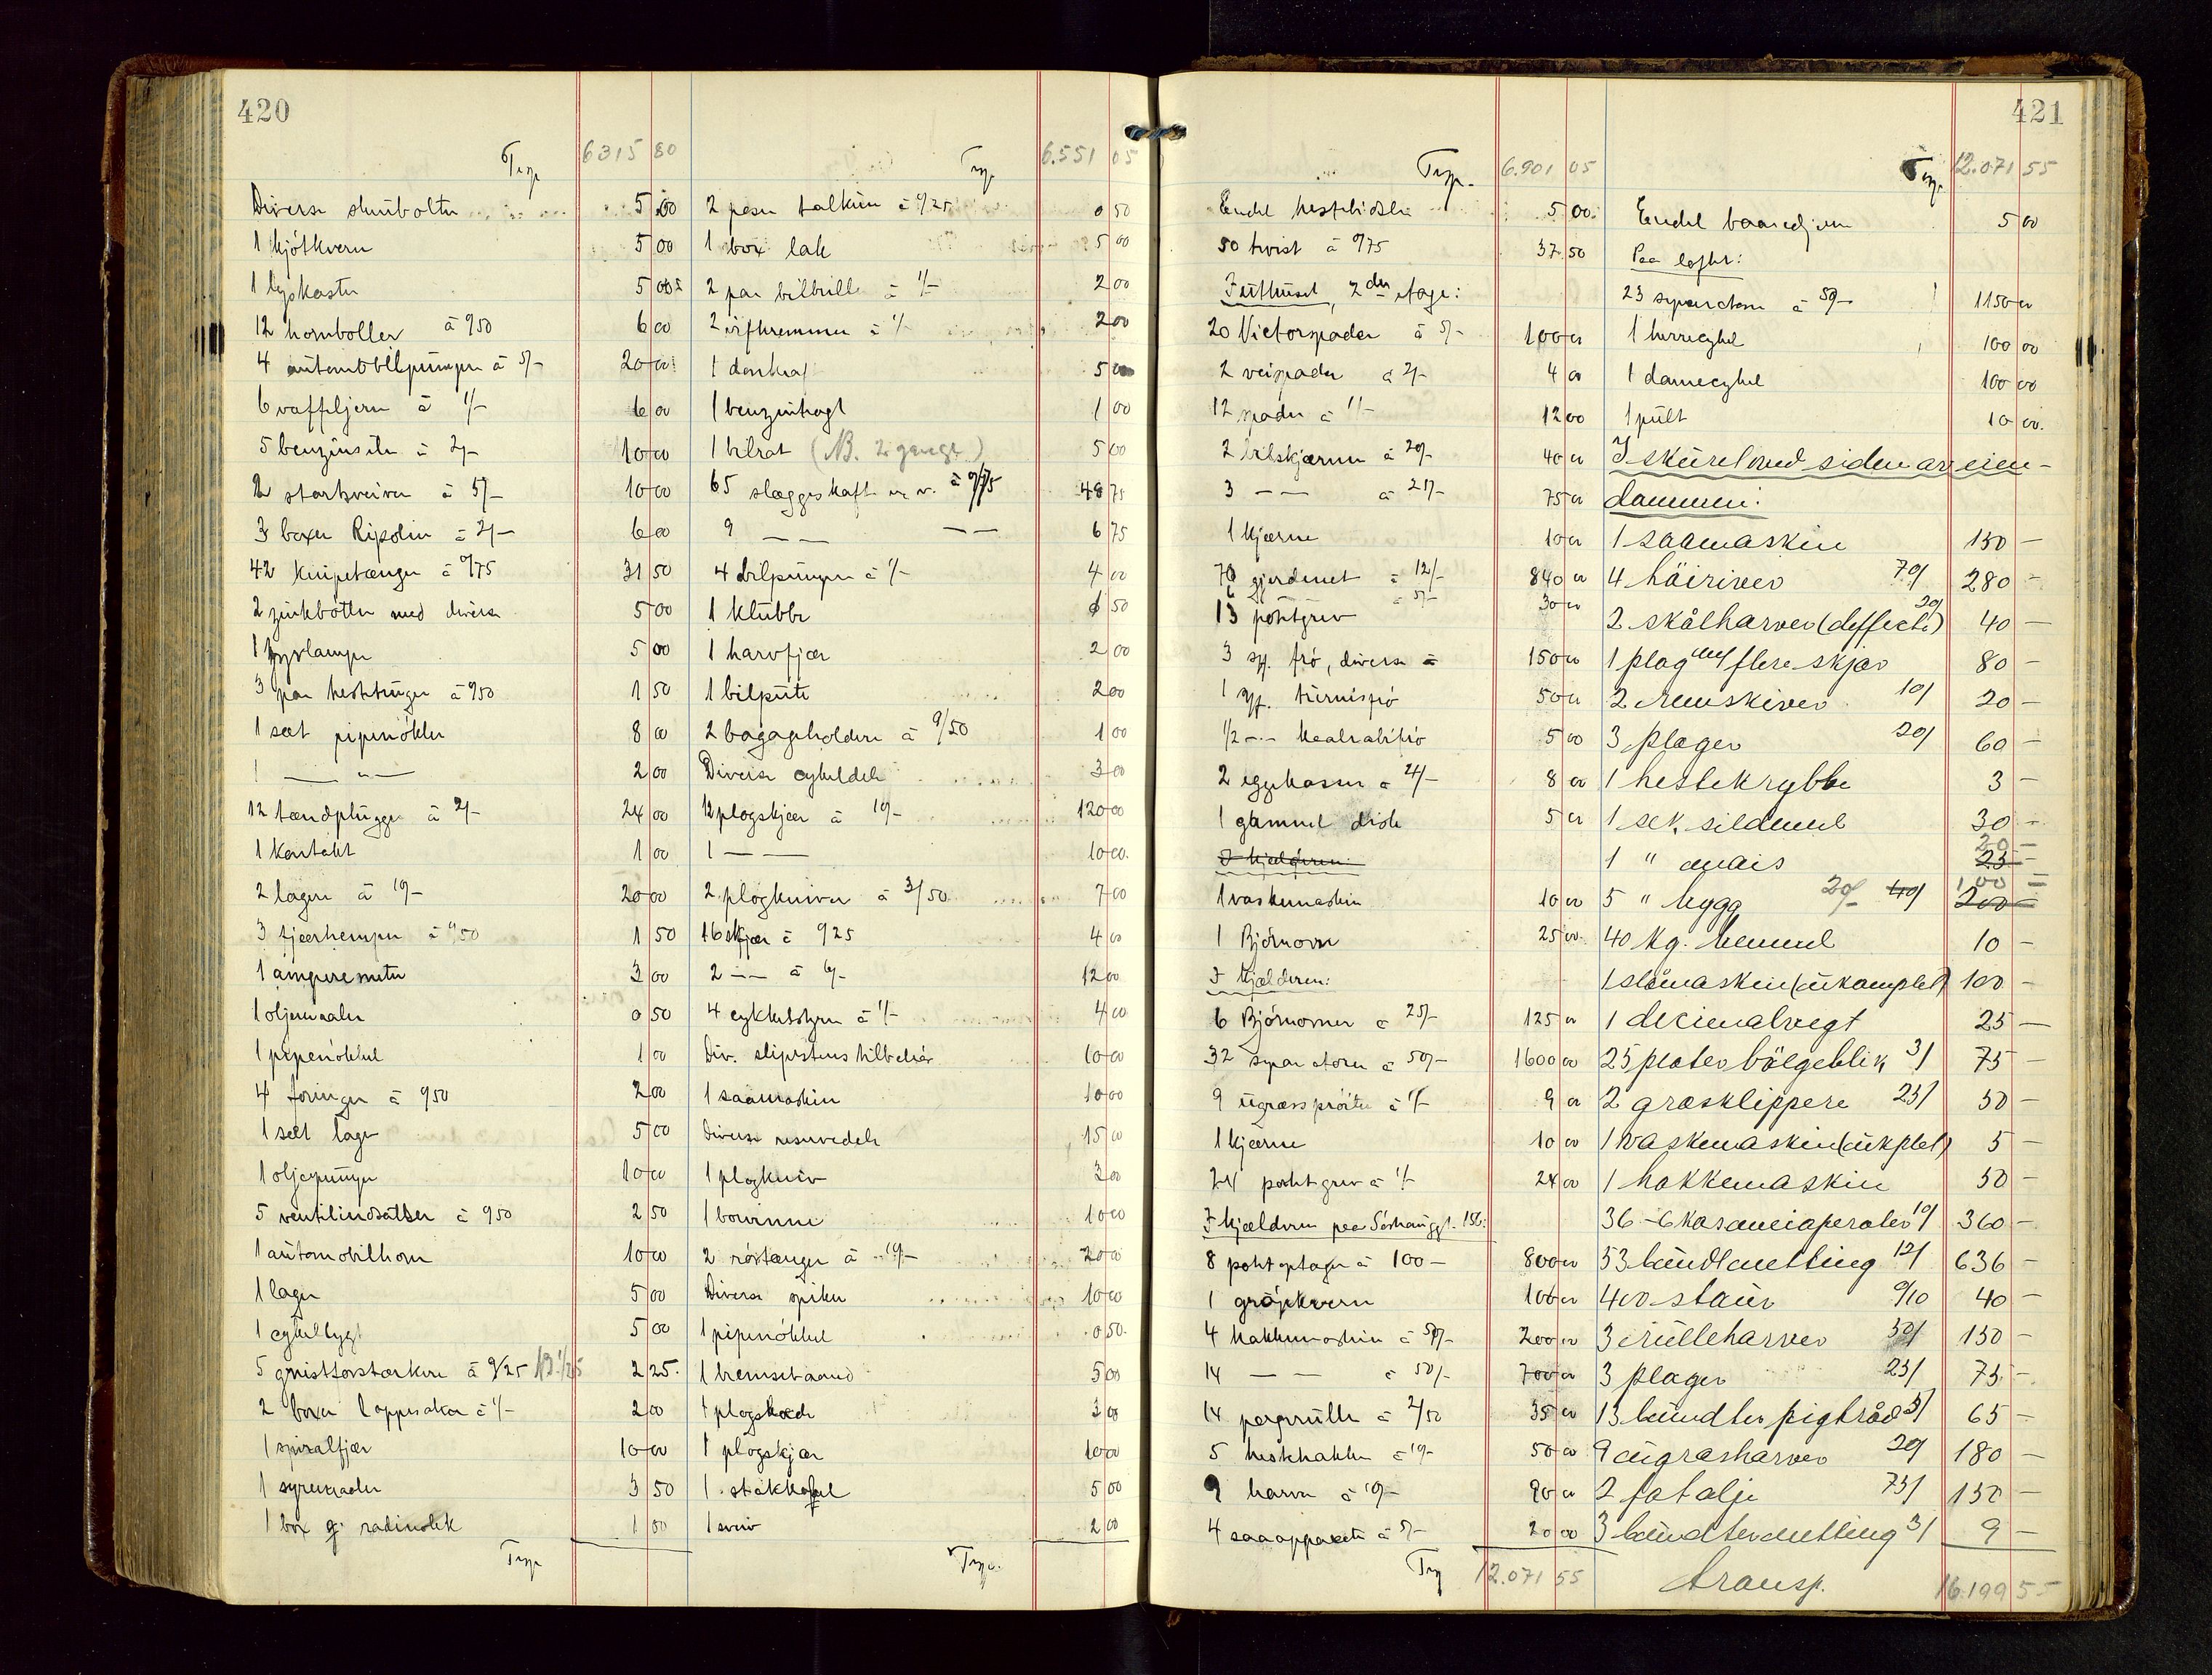 420
Trsp. 6315 80
Diverse skruebolter 5 00
1 kjøtkvern 5 00
1 lyskaster 5 00
12 hornboller à 0/50 6 00
4 automobilpumper à 5/- 20 00
6 vaffeljern à 1/- 6 00
5 benzinsiler à 2/- 10 00
2 startsveiver à 5/- 10 00
3 boxer Ripolin à 2/- 6 00
42 knipetænger à 0/75 31 50
2 zinkbøtter med diverse 5 00
1 lyslampe 5 00
3 par hestringer à 0/50 1 50
1 sæt pipenøkler 8 00
1 — " — 2 00
12 tændplugger à 2/- 24 00
1 kontakt 1 00
2 lagere à 10/- 20 00
3 fjærhemper à 0/50 1 50
1 amperemeter 3 00
1 oljemaaler 0 50
1 pipenøkkel 1 00
4 foringer à 0/50 2 00
1 sæt lager 5 00
1 oljepumpe 10 00
5 ventilindsatser à 0/50 2 50
1 automobilhorn 10 00
1 lager 5 00
1 cykellygt 5 00
5 gnistforstærkere à 0/25 NB 1/25 2 25
2 boxer lappesaker à 1/- 2 00
1 spiralfjær 10 00
1 syremaaler 3 50
1 box g. radiusolek 1 00
Trsp
Trsp 6.551 05
2 poser talkum à 0/25 0 50
1 box lak 5 00
2 par bilbriller à 1/- 2 00
2 vifteremmer à 1/- 2 00
1 donkraf 5 00
1 benzintragt 1 00
1 bilrat (NB. 2 gange) 5 00
65 slæggeskaft m. v. à 0/75 48 75
9 — — — — 6 75
4 bilpumper à 1/- 4 00
1 klubbe 0 50
1 harvfjær 2 00
1 bilpute 2 00
2 bagageholdere à 0/50 1 00
Diverse cykeldele 3 00
12 plogskjær à 10/- 120 00
1 — — 10 00
2 plogkniver à 3/50 7 00
16 skjær à 0/25 4 00
2 — — à 6/- 12 00
4 cykkelstyre à 1/- 4 00
Div. slipestens tilbehør 10 00
1 saamaskin 10 00
Diverse reservedele 15 00
1 plogkniv 3 00
1 borvinne 10 00
2 rørtænger à 10/- 20 00
Diverse spiker 10 00
1 pipenøkkel 0 50
1 bremsebaand 5 00
1 plogskode 3 00
1 plogskjær 10 00
1 stakkagel 5 00
1 sveiv 2 00
Trsp.
421
Trsp. 6.901 05
Endel hestebidsler 5 00
50 twist à 0/75 37 50
I uthuset, 2den etage:
20 Victorspader à 5/- 100 00
2 veispader à 2/- 4 00
12 spader à 1/- 12 00
2 bilskjærmer à 20/- 40 00
3 — — à 25/- 75 00
1 kjærne 10 00
70 gjerdenet à 12/- 840 00
13 potetgrev 30 00
3 sp. frø, diverse 150 00
1 sp. turnipsfrø 50 00
1/2 — - — kaalrabifrø 5 00
2 eggekasser à 4/- 8 00
1 gammel disk 5 00
I kjælderen:
1 vaskemaskin 10 00
1 Bjørnovn 25 00
I kjælderen:
6 Bjørnovner à 25/- 125 00
32 separatorer à 50/- 1600 00
9 ugressprøiter à 1/- 9 00
1 kjærne 10 00
24 potetgrev à 1/- 24 00
I kjælderen paa Sørhauggt. 156:
8 potetoptager à 100- 800 00
1 grøpekvern 100 00
4 hakkemaskin à 50/- 200 00
14 — — à 50/- 700 00
14 pergrulle à 2/50 35 00
5 hestehakker à 10/- 50 00
9 harver à 10/- 90 00
4 saaapparater à 5/- 20 00
Trsp 12.071 55
Trsp. 12.071 55
Endel baandjern 5 00
Paa loftet:
23 separatorer à 50/- 1150 00
1 herrecykel 100 00
1 damecykel 100 00
1 pult 10 00
I skuret ved siden av eien-
dommen:
1 saamaskin 150 -
4 høiriver 70/ 280 -
2 skålharver (deffecte) 20/ 40 -
1 plog m/ flere skjær 80 -
2 remskiver 10/ 20 -
3 ploger 20/ 60 -
1 hestekrybbe 3 -
1 sek. sildemel 30 -
1 " mais 25 - 20 -
5 " bygg 20/- 40/ 200 - 100 =
40 kg. benmel 10 -
1 slåmaskin (ukomplet) 100 -
1 decimalvegt 25 -
25 plater bølgeblik 3/ 75 -
2 grasklippere 25/ 50 -
1 vaskemaskin (ukplet) 5 -
1 hakkemaskin 50 -
36 - 10/ 360 -
53 bundt netting 12/ 636 -
400 staur 0/10 40 -
3 rulleharver 50/ 150 -
3 ploger 25/ 75 -
13 bundter pigtråd 5/ 65 -
9 ugrasharver 20/ 180 -
2 fatolje 75/ 150 -
3 bundter netting 3/ 9 -
transp. 16.199 55